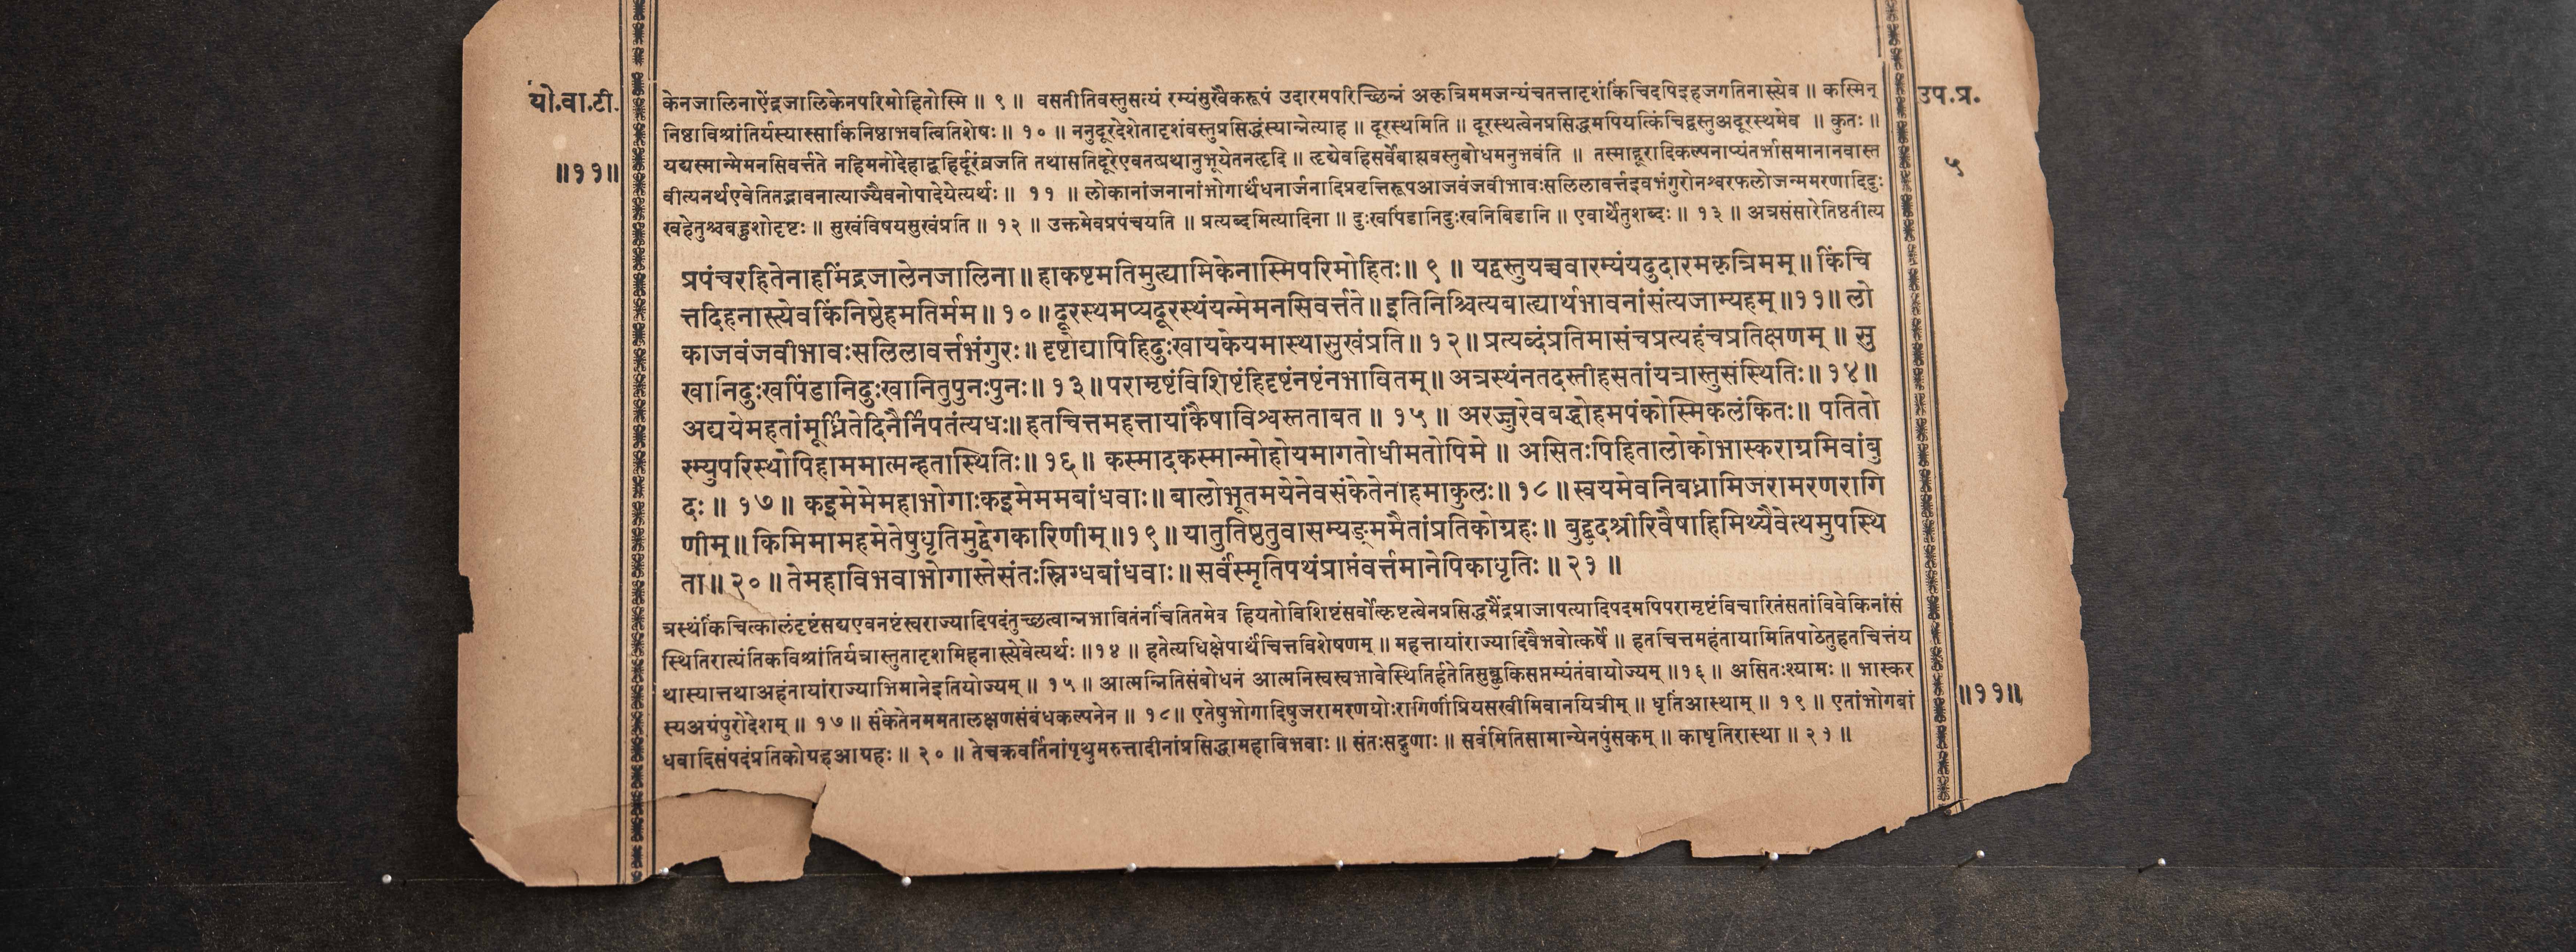 यो.वा.टी.
॥११॥
केनजालिनाऐंद्रजालिकेनपरिमोहितोस्मि ॥ ९ ॥ वसतीतिवस्तुसत्यं रम्यंसुखैकरूपं उदारमपरिच्छिन्नं अकृत्रिममजन्यंचतत्तादृशंकिंचिदपिइहजगतिनास्त्येव ॥ कस्मिन्
निष्ठाविश्रांतिर्यस्यास्साकिंनिष्ठाभवत्वितिशेषः ॥ १० ॥ ननुदूरदेशेतादृशंवस्तुप्रसिद्धंस्यान्नेत्याह ॥ दूरस्थमिति ॥ दूरस्थत्वेनप्रसिद्धमपियत्किंचिद्वस्तुअदूरस्थमेव ॥ कुतः ॥
यद्यस्मान्मेमनसिवर्त्तते नहिमनोदेहाद्बहिर्दूरंव्रजति तथासतिदूरेएवतत्प्रथानुभूयेतनहृदि ॥ हृद्येवहिसर्वेबाह्यवस्तुबोधमनुभवंति ॥ तस्माद्दूरादिकल्पनाप्यंतर्भासमानानवास्त
वीत्यनर्थएवेतितद्भावनात्याज्यैवनोपादेयेत्यर्थः ॥ ११ ॥ लोकानांजनानांभोगार्थधनार्जनादिप्रवृत्तिरूपआजवंजवीभावःसलिलावर्त्तइवभंगुरोनश्वरफलोजन्ममरणादिदुः
खहेतुश्चबहुशोदृष्टः ॥ सुखंविषयसुखंप्रति ॥ १२ ॥ उक्तमेवप्रपंचयति ॥ प्रत्यब्दमित्यादिना ॥ दुःखपिंडानिदुःखनिबिडानि ॥ एवार्थेतुशब्दः ॥ १३ ॥ अत्रसंसारेतिष्ठतीत्य
प्रपंचरहितेनाहमिंद्रजालेनजालिना ॥ हाकष्टमतिमुह्यामिकेनास्मिपरिमोहितः ॥ ९ ॥ यद्वस्तुयच्चवारम्यंयदुदारमकृत्रिमम् ॥ किंचि
त्तदिहनास्त्येवकिंनिष्ठेहमतिर्मम ॥ १० ॥ दूरस्थमप्यदूरस्थंयन्मेमनसिवर्त्तते ॥ इतिनिश्चित्यबाह्यार्थभावनांसंत्यजाम्यहम् ॥११॥ लो
काजवंजवीभावःसलिलावर्त्तभंगुरः ॥ दृष्टोद्यापिहिदुःखायकेयमास्थासुखंप्रति ॥ १२ ॥ प्रत्यब्दंप्रतिमासंचप्रत्यहंचप्रतिक्षणम् ॥ सु
खानिदुःखपिंडानिदुःखानितुपुनःपुनः ॥ १३ ॥ परामृष्टंविशिष्टंहिदृष्टंनष्टंनभावितम् ॥ अत्रस्थंनतदस्तीहसतांयत्रास्तुसंस्थितिः ॥ १४ ॥
अद्ययेमहतांमूर्ध्नितेदिनैर्निपतंत्यधः ॥ हतचित्तमहत्तायांकैषाविश्वस्तताबत ॥ १५ ॥ अरज्जुरेवबद्धोहमपंकोस्मिकलंकितः ॥ पतितो
स्म्युपरिस्थोपिहाममात्मन्हतास्थितिः ॥ १६ ॥ कस्मादकस्मान्मोहोयमागतोधीमतोपिमे ॥ असितःपिहितालोकोभास्कराग्रमिवांबु
दः ॥ १७ ॥ कइमेमेमहाभोगाःकइमेममबांधवाः ॥ बालोभूतमयेनेवसंकेतेनाहमाकुलः ॥ १८ ॥ स्वयमेवनिबध्नामिजरामरणरागि
णीम् ॥ किमिमामहमेतेषुधृतिमुद्वेगकारिणीम् ॥१९ ॥ यातुतिष्ठतुवासम्यङ्ममैतांप्रतिकोग्रहः ॥ बुद्बुदश्रीरिवैषाहिमिथ्यैवेत्थमुपस्थि
ता ॥ २० ॥ तेमहाविभवाभोगास्तेसंतःस्निग्धबांधवाः ॥ सर्वंस्मृतिपथंप्राप्तंवर्त्तमानेपिकाधृतिः ॥ २१ ॥
त्रस्थंकिंचित्कालंदृष्टंसद्यएवनष्टंस्वराज्यादिपदंतुच्छत्वान्नभावितंनचिंतितमेव हियतोविशिष्टंसर्वोत्कृष्टत्वेनप्रसिद्धमैंद्रप्राजापत्यादिपदमपिपरामृष्टंविचारितंसतांविवेकिनांसं
स्थितिरात्यंतिकविश्रांतिर्यत्रास्तुतादृशमिहनास्त्येवेत्यर्थः ॥१४ ॥ हतेत्यधिक्षेपार्थंचित्तविशेषणम् ॥ महत्तायांराज्यादिवैभवोत्कर्षे ॥ हतचित्तमहंतायामितिपाठेतुहतचित्तंय
थास्यात्तथाअहंतायांराज्याभिमानेइतियोज्यम् ॥ १५ ॥ आत्मन्नितिसंबोधनं आत्मनिस्वस्वभावेस्थितिर्हतेतिसुब्लुकिसप्तम्यंतंवायोज्यम् ॥१६ ॥ असितःश्यामः ॥ भास्कर
स्यअग्रंपुरोदेशम् ॥ १७ ॥ संकेतेनममतालक्षणसंबंधकल्पनेन ॥ १८ ॥ एतेषुभोगादिषुजरामरणयोःरागिणींप्रियसखीमिवानयित्रीम् ॥ धृतिंआस्थाम् ॥ १९ ॥ एतांभोगबां
धवादिसंपदंप्रतिकोग्रहआग्रहः ॥ २० ॥ तेचक्रवर्तिनांपृथुमरुत्तादीनांप्रसिद्धामहाविभवाः ॥ संतःसद्गुणाः ॥ सर्वमितिसामान्येनपुंसकम् ॥ काधृतिरास्था ॥ २१ ॥
उप.प्र.
५
॥११॥